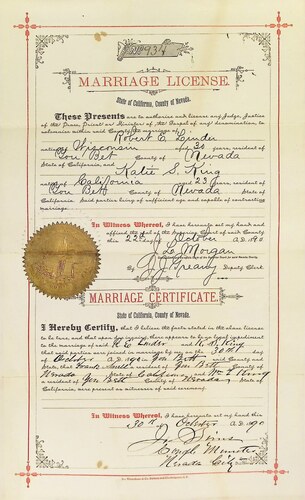 2693½
MARRIAGE LICENSE
State of California, County of Nevada.
These Presents are to authorize and license any Judge, Justice
of the Peace, Priest or Minister of the Gospel of any denomination, to
solemnize within said County the marriage of
Robert C. Linder
native of Wisconsin aged 30 years, resident of
You Bet County of Nevada
State of California, and Katie S. King
native of California aged 23 years, resident of
You Bet County of Nevada
State of California. Said parties being of sufficient age and capable of contracting
marriage.
In Witness Whereof, I have hereunto set my hand and
affixed the Seal of the Superior Court of said County
this 22 October A.D. 190
Morgan
Deputy Clerk.
MARRIAGE CERTIFICATE
State of California, County of Nevada.
I Hereby Certify, that I believe the facts stated in the above license
to be true, and that upon due inquiry there appears to be no legal impediment
to the marriage of said R C Linder and K S King
that said parties were joined in marriage by me on the 30th day
of October A.D. 190 in You Bett said County and
State; that Frank a resident of You Bet County of
Nevada State of California and Wm King a
resident of You Bett County of Nevada State of
California, are present as witnesses of said ceremony.
In Witness Whereof, I have hereunto set my hand this
30th October A.D. 190
Sims
Minister
Nevada City